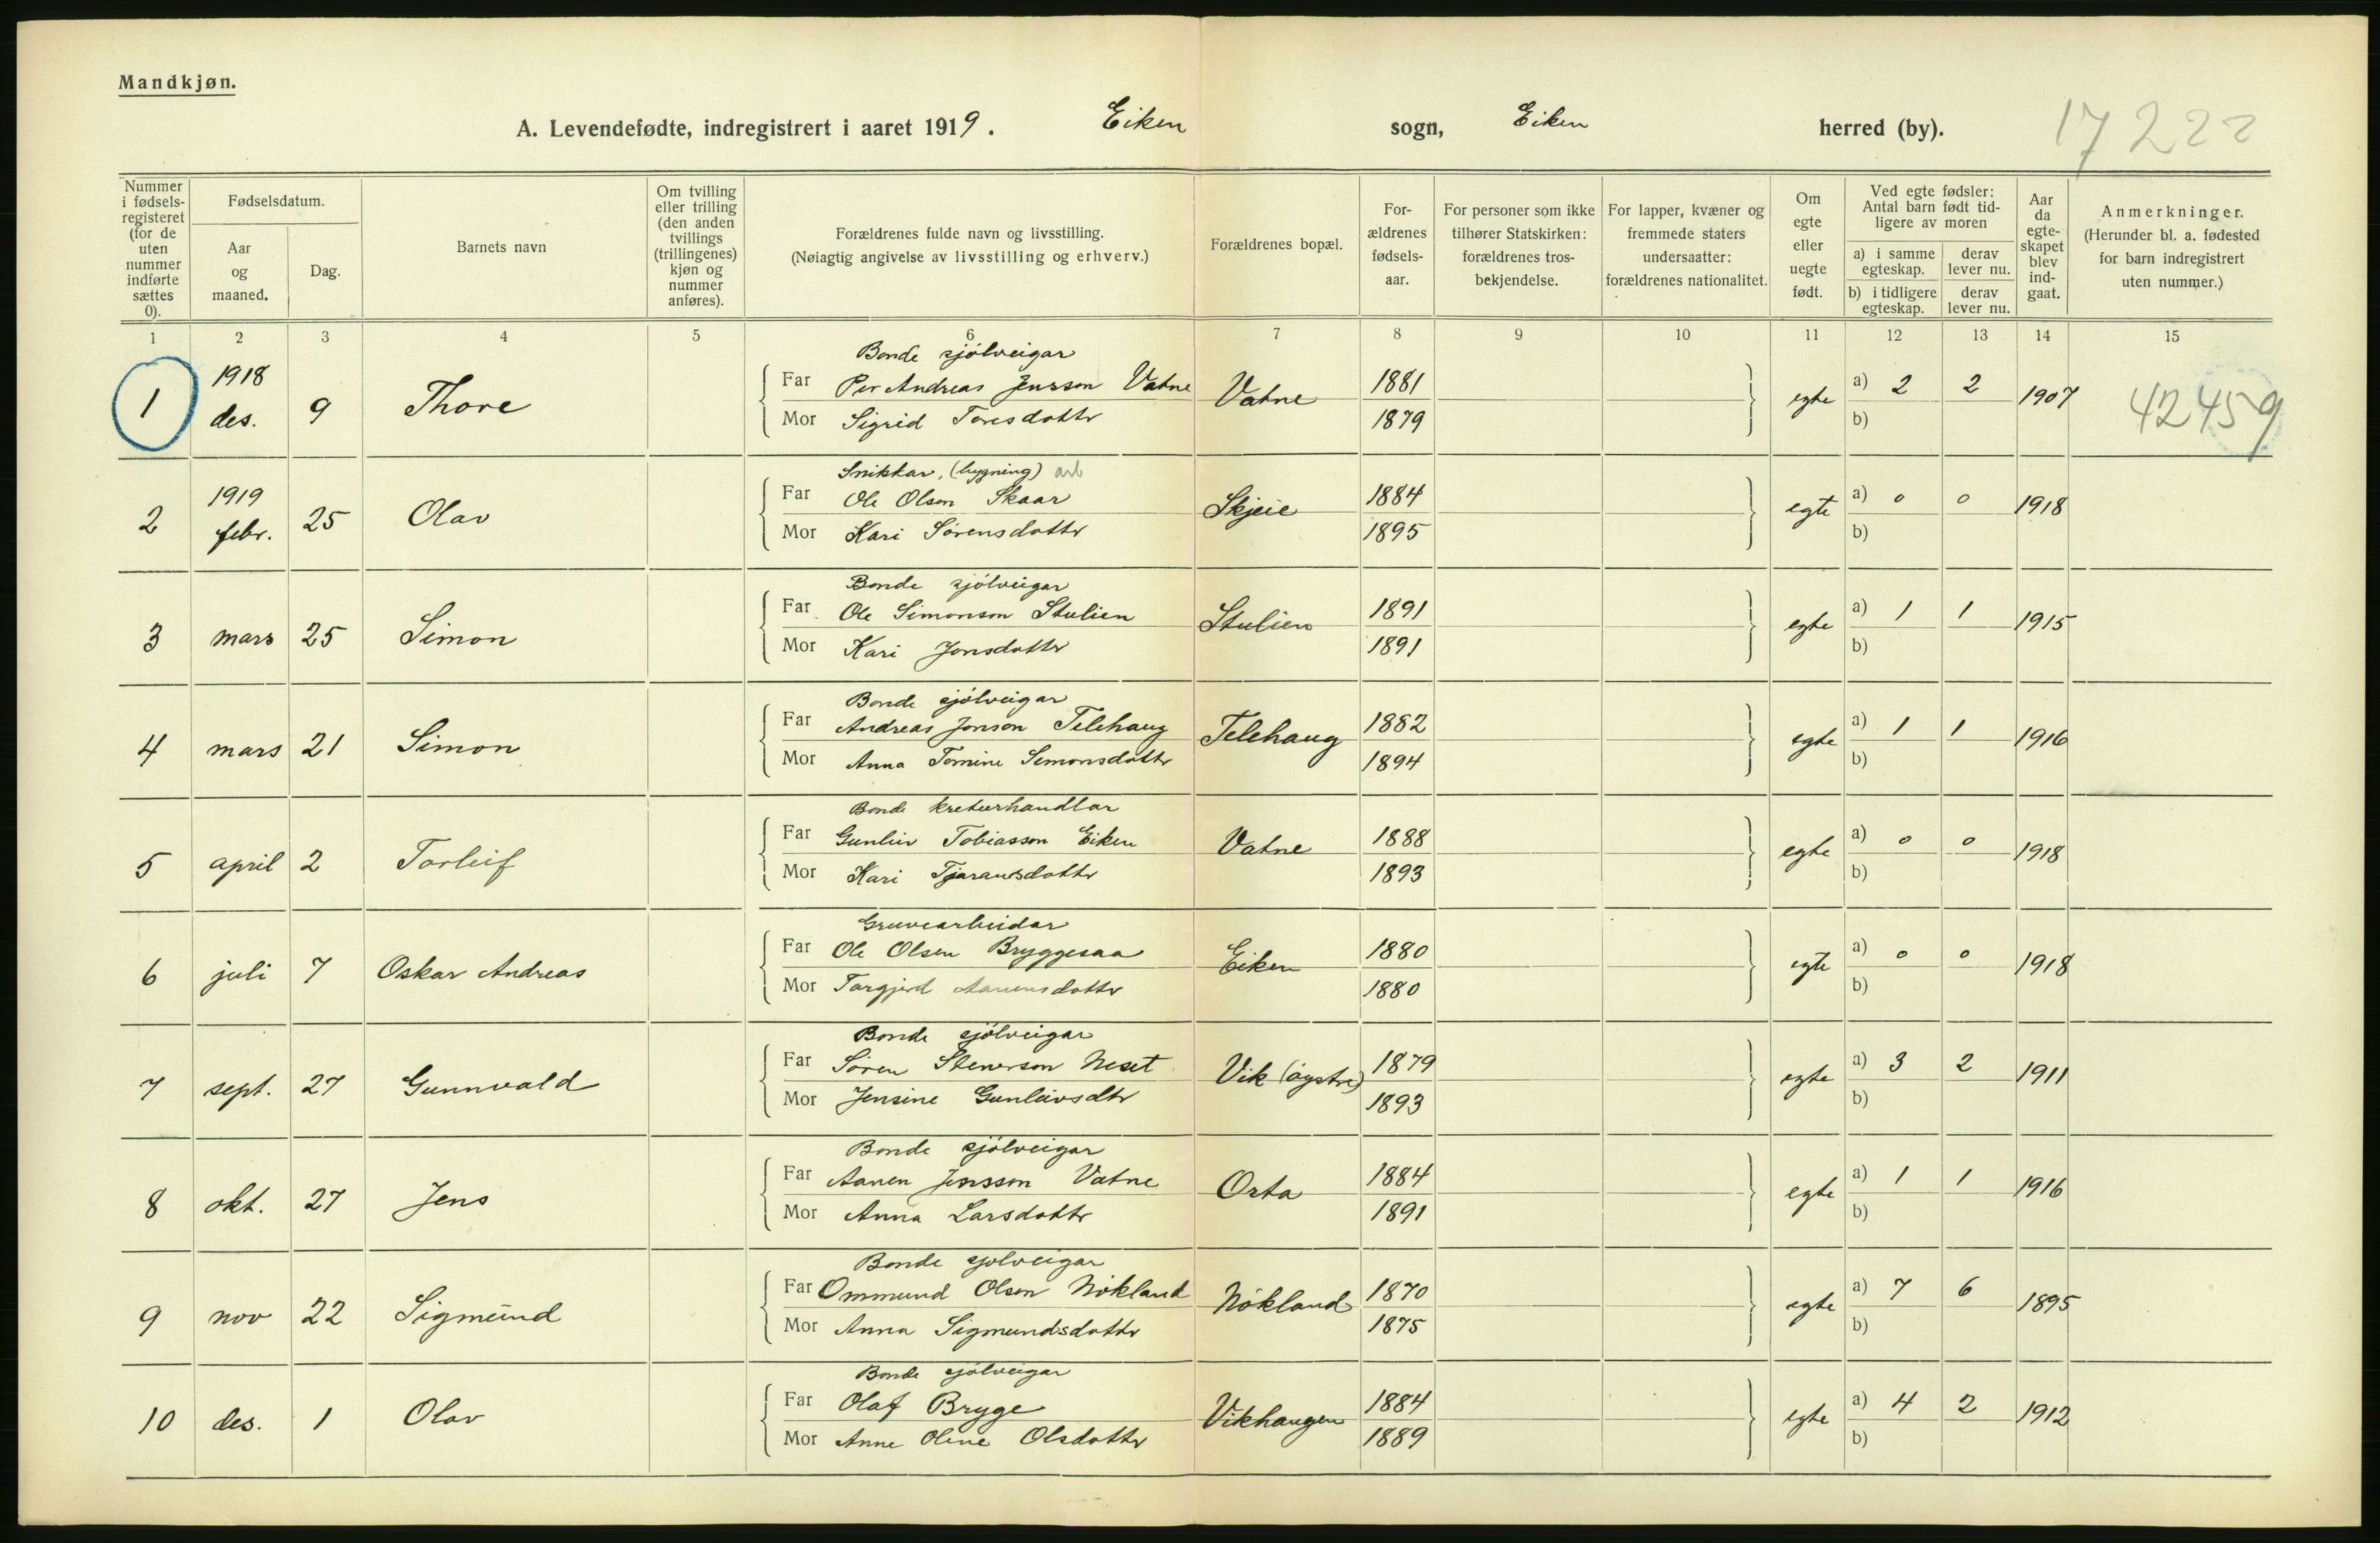 Mandkjøn.
A. Levendefødte, indregistrert i aaret 1919. Eiken sogn, Eiken herred (by). 17222
Nummer i fødselsregisteret (for de uten nummer indførte sættes 0).
Fødselsdatum.
Aar og maaned.
Dag.
Barnets navn
Om tvilling eller trilling (den anden tvillings (trillingenes) kjøn og nummer anføres).
Forældrenes fulde navn og livsstilling.
(Nøiagtig angivelse av livsstilling og erhverv.)
Forældrenes bopæl.
Forældrenes fødselsaar.
For personer som ikke tilhører Statskirken: forældrenes trosbekjendelse.
For lapper, kvæner og fremmede staters undersaatter: forældrenes nationalitet.
Om egte eller uegte født.
Ved egte fødsler: Antal barn født tidligere av moren
a) i samme egteskap. derav lever nu.
b) i tidligere egteskap. derav lever nu.
Aar da egteskapet blev indgaat.
Anmerkninger.
(Herunder bl. a. fødested for barn indregistrert uten nummer.)
1 2 3 4 5 6 7 8 9 10 11 12 13 14 15
Bonde sjólveigar
1 1918 des. 9 Thore Far Per Andreas Jensson Vatne Vatne 1881 egte a) 2 2 1907 42459
Mor Sigrid Toresdottr 1879 b)
Snikkar, (bygning) arb
2 1919 febr. 25 Olav Far Ole Olsen Skaar Skjeie 1884 egte a) 0 0 1918
Mor Kari Sørensdottr 1895 b)
Bonde sjólveigar
3 mars 25 Simon Far Ole Simonson Stulien Stulien 1891 egte a) 1 1 1915
Mor Kari Jonsdottr 1891 b)
Bonde sjólveigar
4 mars 21 Simon Far Andreas Jonson Telehaug Telehaug 1882 egte a) 1 1 1916
Mor Anna Tomine Simonsdottr 1894 b)
Bonde kreturhandlar
5 april 2 Torleif Far Gunleiv Tobiasson Eiken Vatne 1888 egte a) 0 0 1918
Mor Kari Tjaransdottr 1893 b)
Gruvearbeidar
6 juli 7 Oskar Andreas Far Ole Olsen Bryggesaa Eiken 1880 egte a) 0 0 1918
Mor Torgjerd Aanensdottr 1880 b)
Bonde sjólveigar
7 sept. 27 Gunnvald Far Søren Stenerson Neset Vik (óystre) 1879 egte a) 3 2 1911
Mor Jensine Gunleivsdtr 1893 b)
Bonde sjólveigar
8 okt. 27 Jens Far Aanen Jensson Vatne Orta 1884 egte a) 1 1 1916
Mor Anna Larsdottr 1891 b)
Bonde sjolveigar
9 nov 22 Sigmund Far Ommund Olsen Nókland Nókland 1870 egte a) 7 6 1895
Mor Anna Sigmundsdottr 1875 b)
Bonde sjólveigar
10 des. 1 Olav Far Olaf Bryge Vikhaugen 1884 egte a) 4 2 1912
Mor Anne Oline Olsdottr 1889 b)